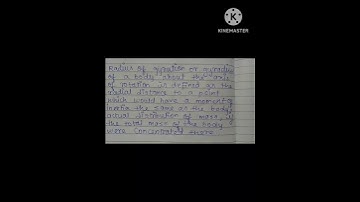 KINEMASTER
Radius of gyration or gyradius
of a body about the axis
of rotation is defined as the
radial distance to a point
which would have a moment of
inertia the same as the body's
actual distribution of mass, if
the total mass of the body
were concentrated there